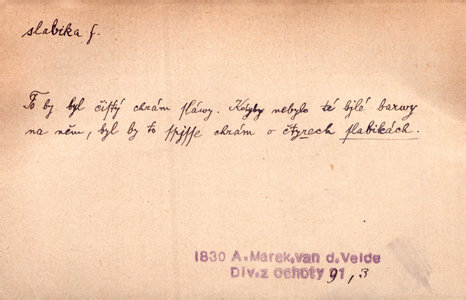 slabika f.
To by byl čistý chrám slávy. Kdyby nebylo té bjlé barwy
na něm, byl by to spjsse chrám o čtyrech slabikách.
1830 A.Marek,van d.Velde
Div.z ochoty 91,3